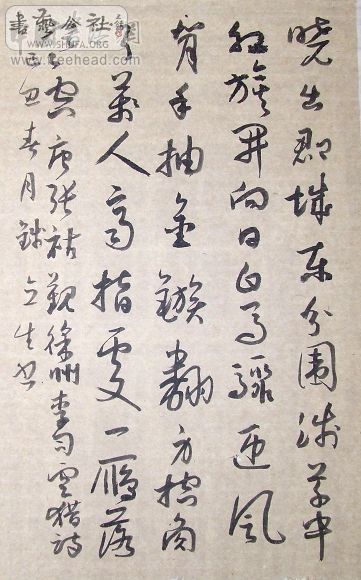 晓出郡城东分围浅草中
红旗开向日白马骤迎风
背手抽金镞翻身控角
弓万人齐指处一雁落
寒空 唐张祜观徐州李司空猎诗
丑春月
书艺公社
WWW.SHUFA.ORG